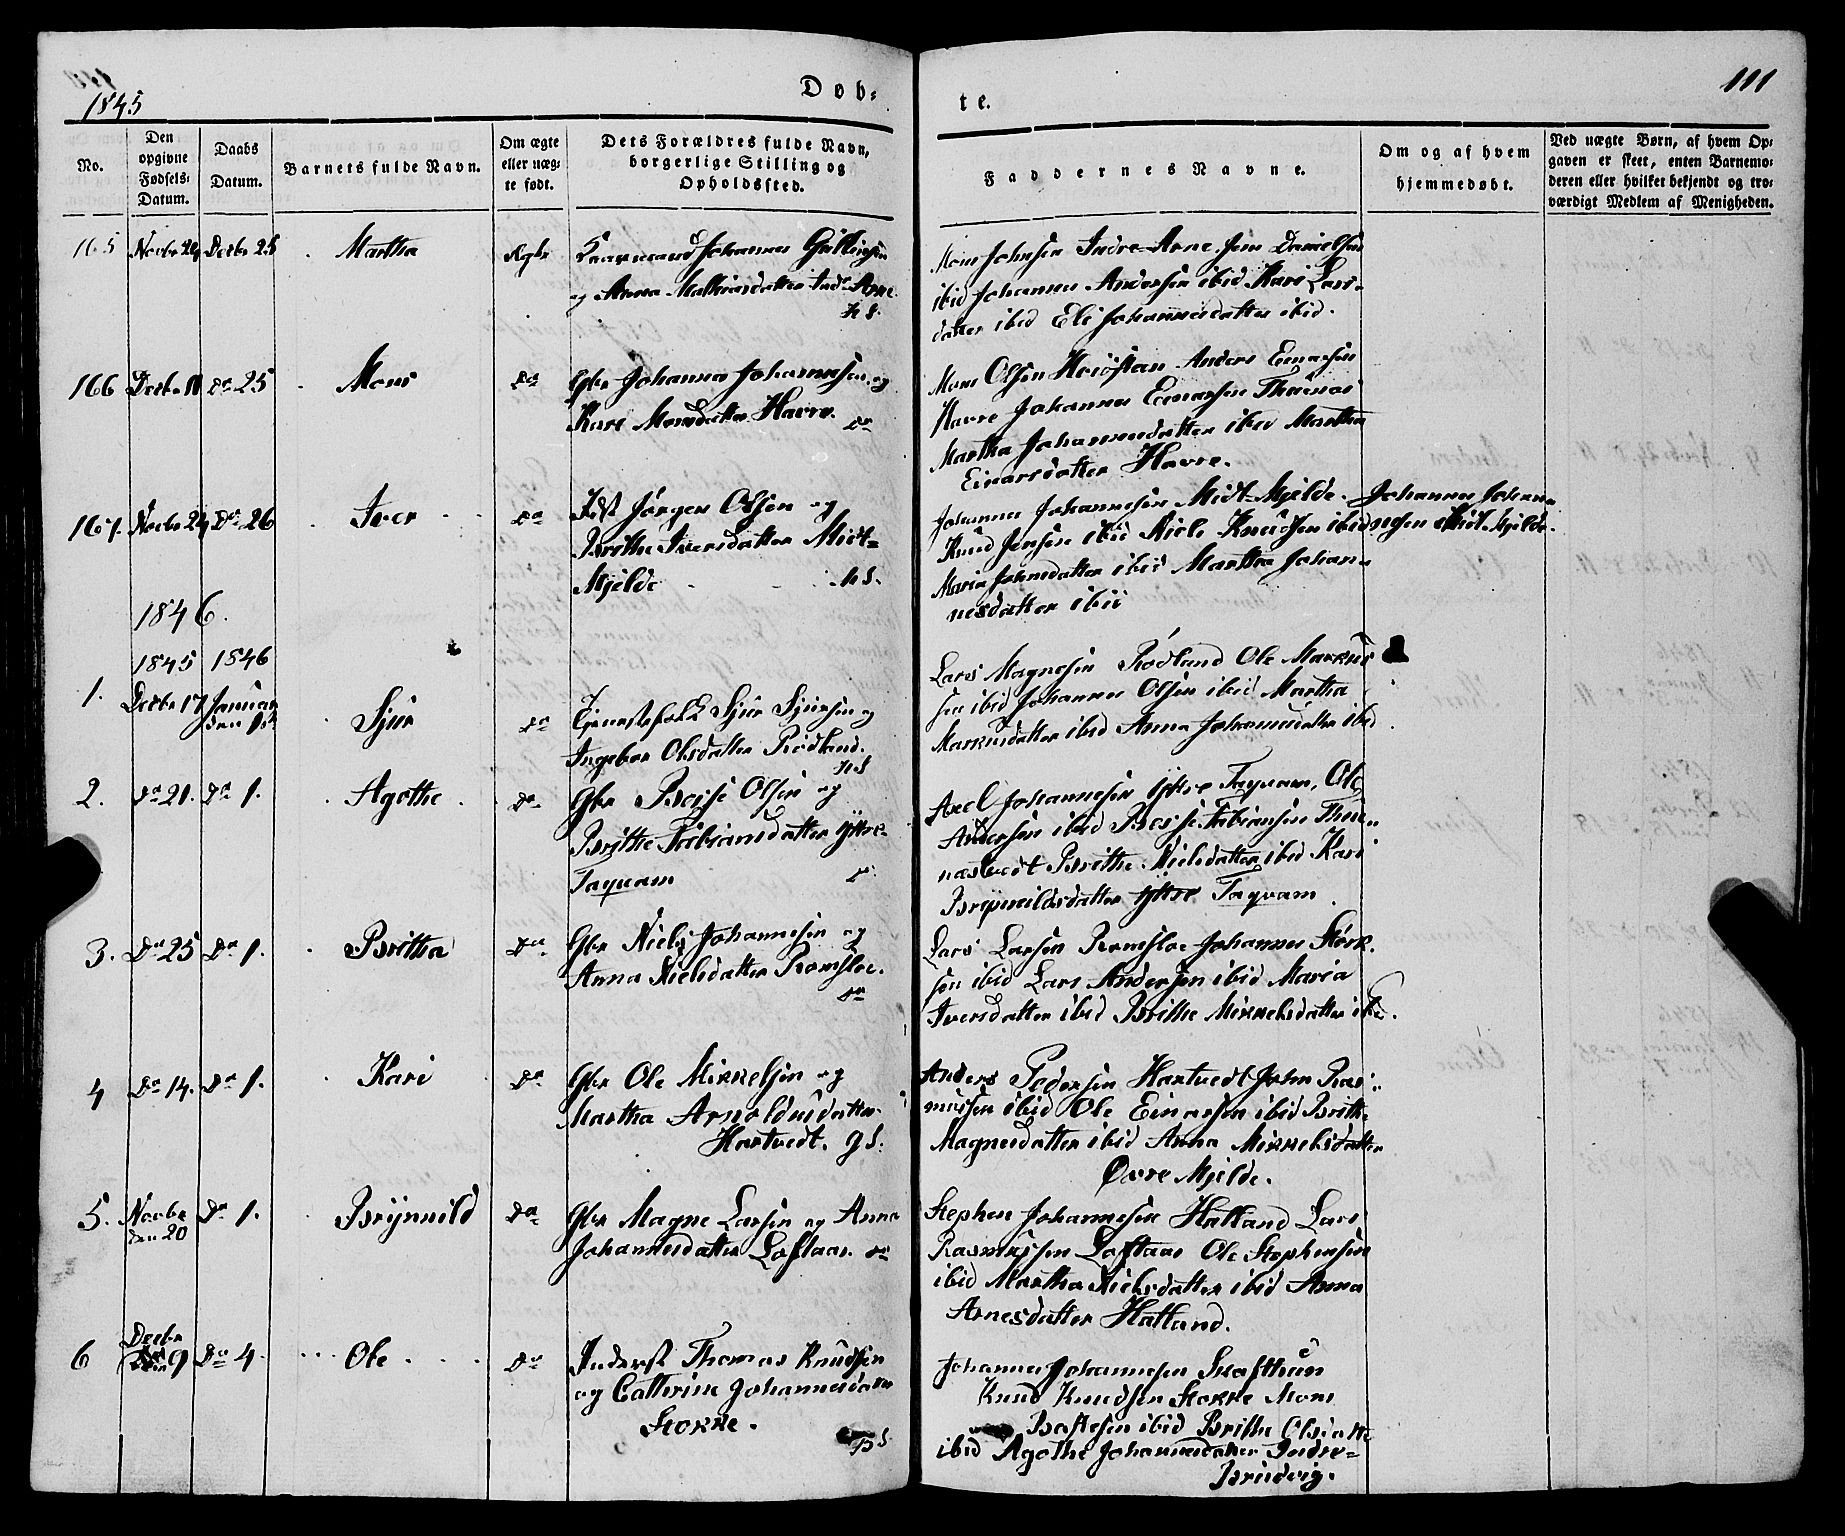 1845
Døb-
te.
111
No.
Den
opgivne
Fødsels-
Datum.
Daabs
Datum.
Barnets fulde Navn.
Om ægte
eller uæg-
te født.
Dets Forældres fulde Navn,
borgerlige Stilling og
Opholdssted.
Faddernes Navne.
Om og af hvem
hjemmedøbt.
Ved uægte Børn, af hvem Op-
gaven er skeet, enten Barnemo-
deren eller hvilket bekjendt og tro-
værdigt Medlem af Menigheden.
165 Novbr 29 Decbr 25 Martha Ægte
Johannes
og Anna Mathiasdatter Indr Arne
hS.
Mons Johnsen Indre-Arne Jens Danielsen
ibid Johannes Andersen ibid Kari Lars-
datter ibid Eli Johannesdatter ibid.
166 Decbr 11 Do 25 Mons Do
Gbr Johannes Johannesen og
Kari Monsdatter Havre. Do
Mons Olsen Anders Einarsen
Havre Johannes Einarsen
Martha Johannesdatter ibid Martha
Einarsdatter Havre.
167. Novbr 24 Do 26 Iver Do
Idst Jørgen Olsen og
Brithe Iversdatter Midt-
Mjelde hS.
Johannes Johannesen Midt-Mjelde
Knud Jensen ibid Niels Knudsen ibid
Maria Johnsdatter ibid Martha Johan-
nesdatter ibid
Johannes Johan-
nesen Midt Mjelde.
1846.
1845 1846
1. Decbr 17 Januar
den 1ste
Sjur Do
Tjenestefolk Sjur Sjursen og
Ingebor Olsdatter Rødland.
hS
Lars Magnesen Rødland Ole Markus
sen ibid Johannes Olsen ibid Martha
Markusdatter ibid Anna Johannesdatter ibid
2. Do 21. Do 1. Agathe Do
Gbr Børge Olsen og
Brithe Fabiansdatter Yttre-
Taqvam Do
Axel Johannesen Yttre Taqvam, Ole
Andersen ibid Børge Fabiansen Thun-
næstvedt Brithe Nielsdatter ibid Kari
Brynnildsdatter Yttre Taqvam
3. Do 25 Do 1. Britha Do
Gbr Niels Johannesen og
Anna Nielsdatter Romsloe.
Do
Lars Larsen Romsloe Johannes Størk-
sen ibid Lars Andersen ibid Maria
Iversdatter ibid Brithe Mikkelsdatter ibid.
4 Do 14. Do 1. Kari Do
Gbr Ole Mikkelsen og
Martha Arnoldusdatter
Hartvedt. gS.
Anders Pedersen Hartvedt John Ras-
mussen ibid Ole Einarsen ibid Brithe
Magnesdatter ibid Anna Mikkelsdatter
Øvre Mjelde.
5. Novbr
den 20
Do 1. Brynnild Do
Gbr Magne Larsen og Anna
Johannesdatter Loftaas Do
Stephen Johannesen Hatland Lars
Rasmussen Loftaas Ole Stephensen
ibid Martha Nielsdatter ibid Anna
Arnesdatter Hatland.
6 Decbr
9 Do 4. Ole Do
Inderst Thomas Knudsen
og Cathrine Johannesdatter
Stokke.
hS
Johannes Johannesen Skafthun
Knud Knudsen Stokke Mons
ibid Brithe Olsdatter
ibid Agathe Johannesdatter Indre-
Bruvig.